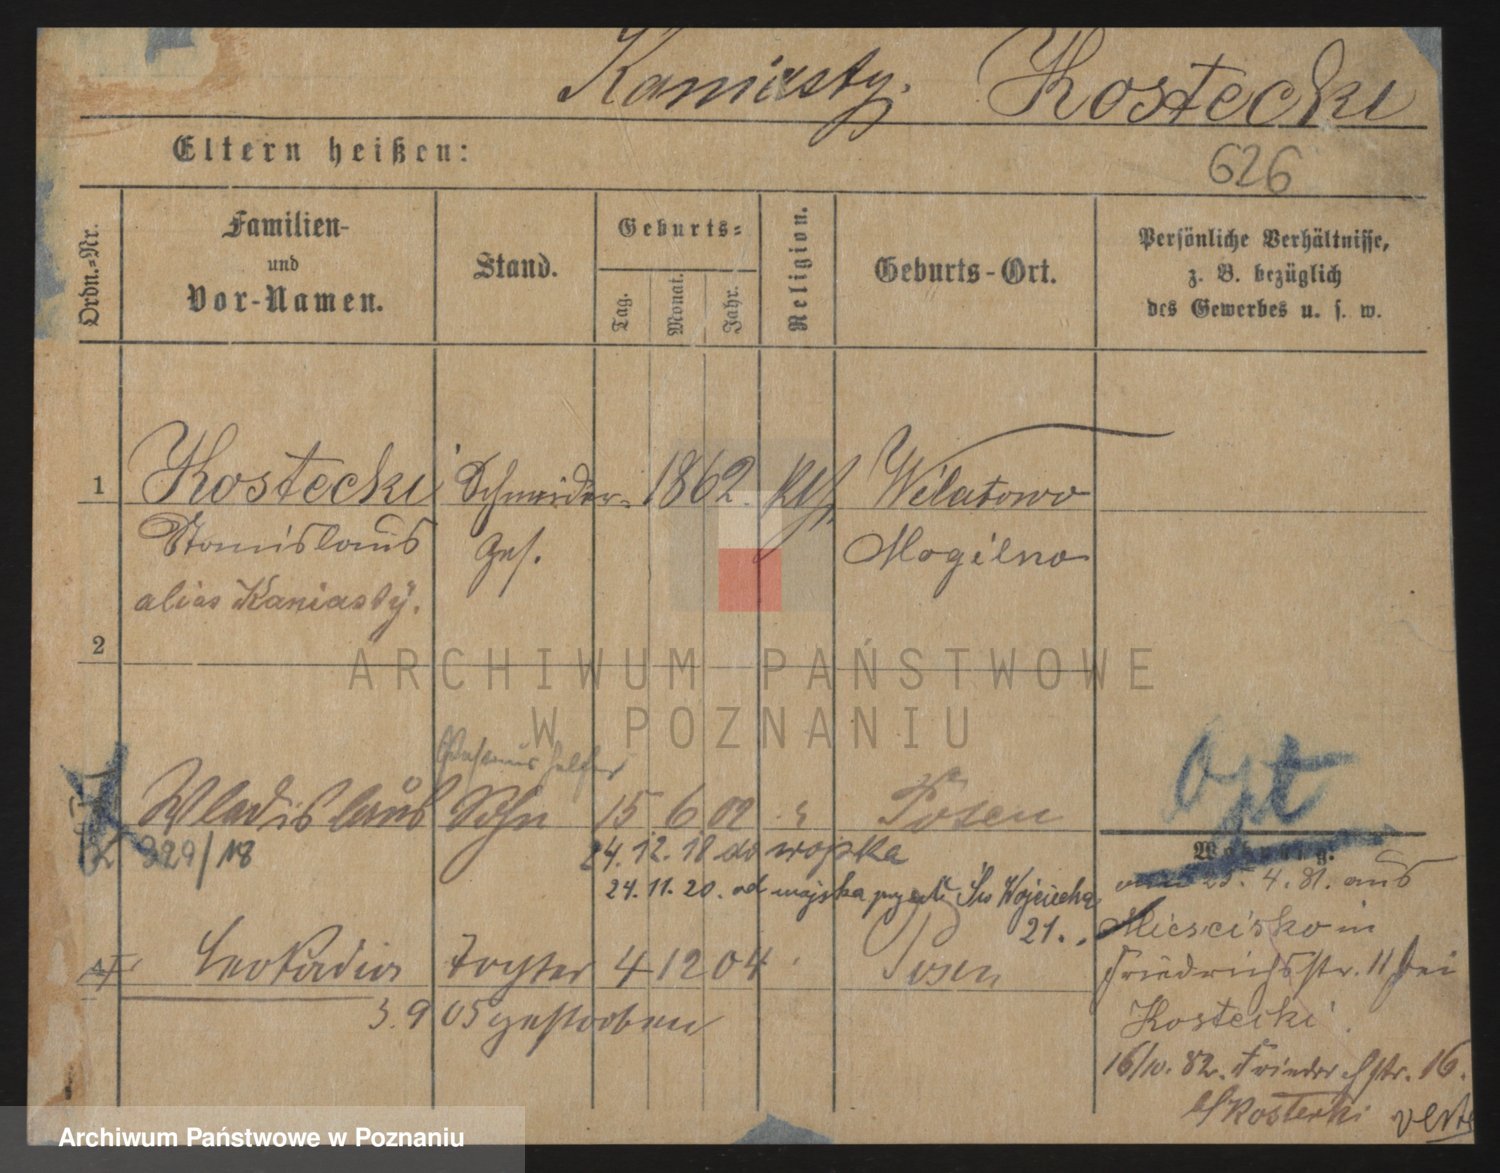 Kaniasty. Kostecki
Eltern heißen:
626
Ordn.-Nr.
Familien-
und
Vor-Namen.
Stand.
Geburts-
Tag.
Monat.
Jahr.
Religion.
Geburts-Ort.
Persönliche Verhältnisse,
z. B. bezüglich
des Gewerbes u. s. w.
1 Kostecki Schneider- 1862. Kth. Wilatowo
Stanislaus Ges. Mogilno
alias Kaniasty.
2
ARCHIWUM PAŃSTWOWE
W POZNANIU
Wladislaus Sohn 15 6 02 " Posen
329/18
24.12.18 do wojska
24.11.20. od wojska Św Wojciecha
21.
Leokadia Tochter 4 12 04 Posen
3.9 05 gestorben
Wohnung:
4. 81. aus
Miescisko in
Friedrichsstr. 11 bei
Kostecki.
16/10. 82. Friedrichstr. 16.
Kostecki verte
Archiwum Państwowe w Poznaniu